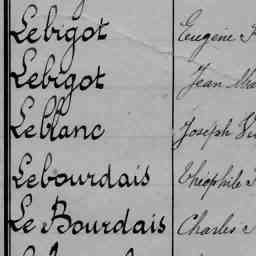 Lebigot Eugène
Lebigot Jean
Leblanc Joseph
Lebourdais Théophile
Le Bourdais Charles